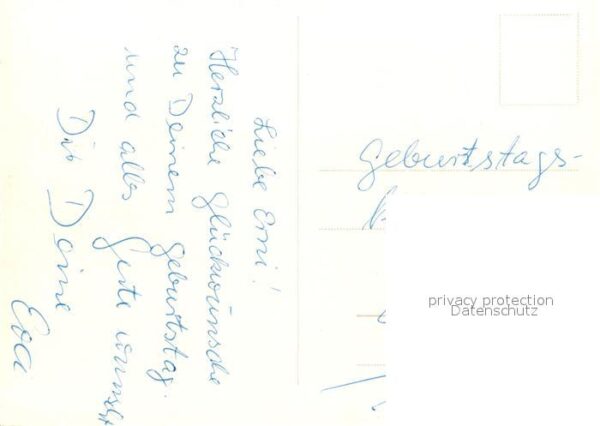 Liebe Erni!
Herzliche Glückwünsche
zu Deinem Geburtstag
und alles Gute wünscht
Dir Deine
Evi
Geburtstags-
privacy protection
Datenschutz